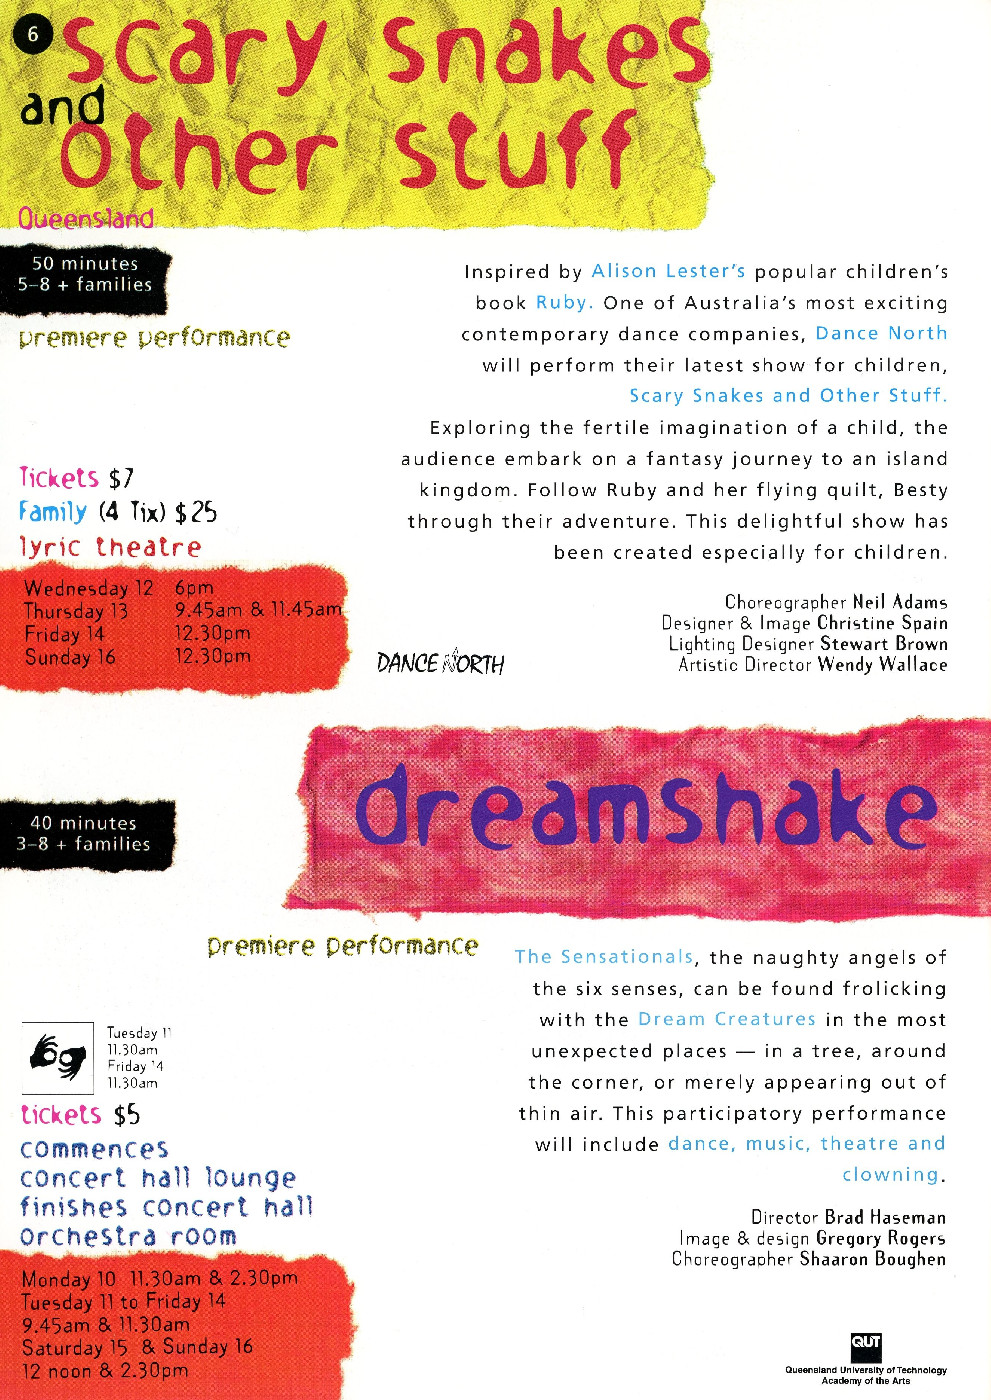 6
scary snakes
and
other stuff
Queensland
50 minutes
5–8 + families
premiere performance
Inspired by Alison Lester's popular children's
book Ruby. One of Australia's most exciting
contemporary dance companies, Dance North
will perform their latest show for children,
Scary Snakes and Other Stuff.
Exploring the fertile imagination of a child, the
audience embark on a fantasy journey to an island
kingdom. Follow Ruby and her flying quilt, Besty
through their adventure. This delightful show has
been created especially for children.
Tickets $7
Family (4 Tix) $25
lyric theatre
Wednesday 12 6pm
Thursday 13 9.45am & 11.45am
Friday 14 12.30pm
Sunday 16 12.30pm
DANCE NORTH
Choreographer Neil Adams
Designer & Image Christine Spain
Lighting Designer Stewart Brown
Artistic Director Wendy Wallace
dreamshake
40 minutes
3–8 + families
premiere performance
The Sensationals, the naughty angels of
the six senses, can be found frolicking
with the Dream Creatures in the most
unexpected places — in a tree, around
the corner, or merely appearing out of
thin air. This participatory performance
will include dance, music, theatre and
clowning.
Tuesday 11
11.30am
Friday 14
11.30am
tickets $5
commences
concert hall lounge
finishes concert hall
orchestra room
Monday 10 11.30am & 2.30pm
Tuesday 11 to Friday 14
9.45am & 11.30am
Saturday 15 & Sunday 16
12 noon & 2.30pm
Director Brad Haseman
Image & design Gregory Rogers
Choreographer Shaaron Boughen
QUT
Queensland University of Technology
Academy of the Arts